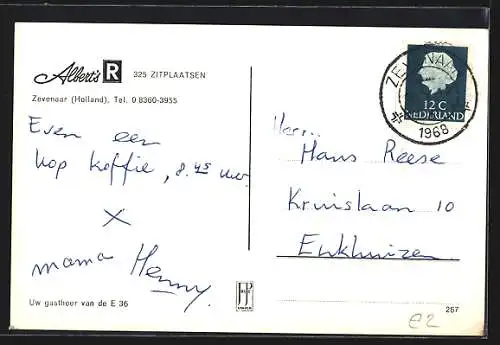 Albert's R 325 ZITPLAATSEN
Zevenaar (Holland), Tel. 0 8360-3955
Even een
kop koffie, 8.45 uur.
X
mama Henny.
Uw gastheer van de E 36
ZEVENAAR
1968
12 C
NEDERLAND
Herr.
Hans Reese
Kruislaan 10
Enkhuizen
257
e2